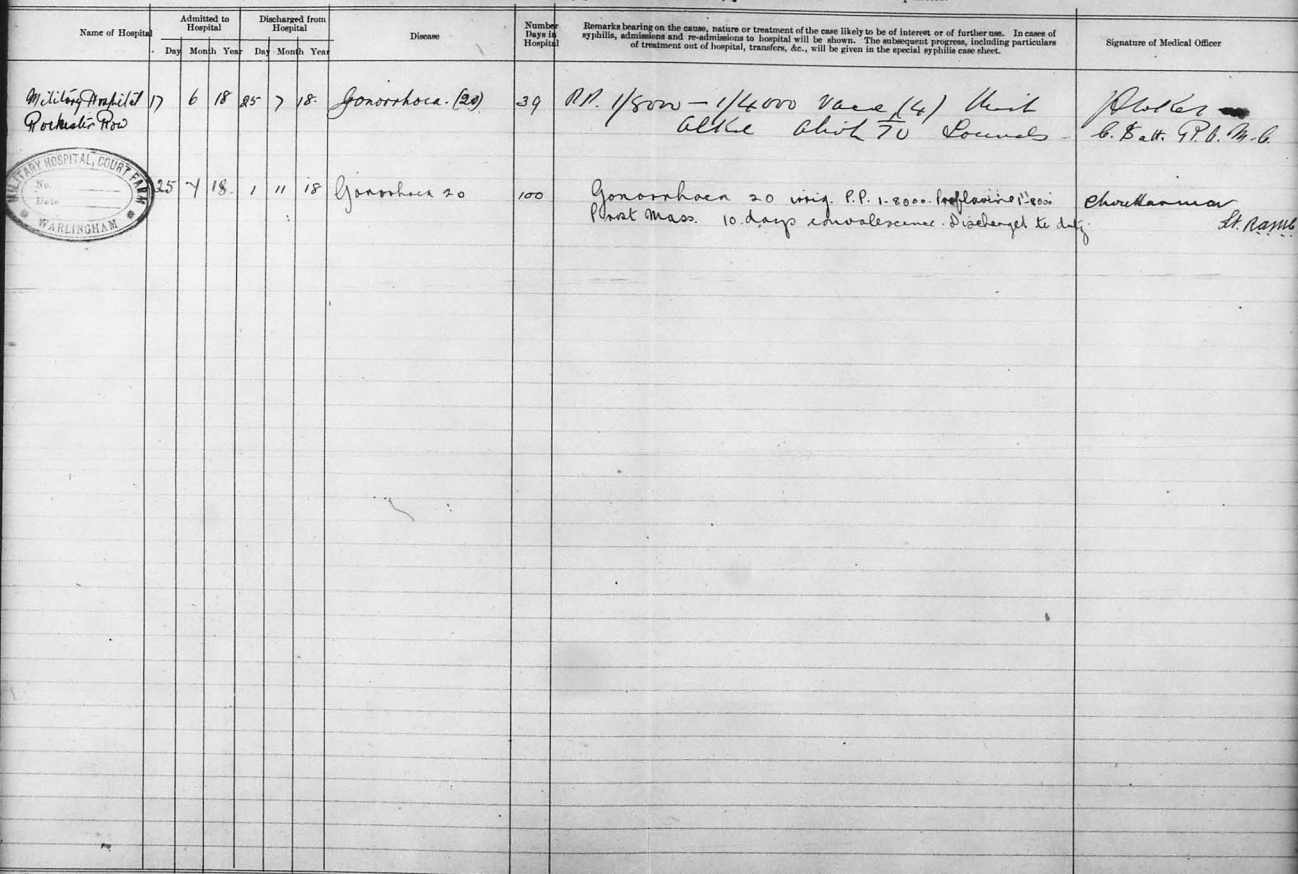 Name of Hospital
Admitted to Hospital
Day Month Year
Discharged from Hospital
Day Month Year
Disease
Number Days in Hospital
Remarks bearing on the cause, nature or treatment of the case likely to be of interest or of further use. In cases of
syphilis, admissions and re-admissions to hospital will be shown. The subsequent progress, including particulars
of treatment out of hospital, transfers, &c., will be given in the special syphilis case sheet.
Signature of Medical Officer
Military Hospital 17 6 18 25 7 18. Gonorrhoea. (20) 39 P.P. 1/8000 – 1/4000 Vacc (4)
Rochester Row Sounds
MILITARY HOSPITAL, COURT FARM
No.
Date
WARLINGHAM
25 7 18. 1 11 18 Gonorrhoea 20 100 Gonorrhoea 20 irrig. P.P. 1-8000. Proflavine 1-8000
Prost Mass. 10 days convalescence. Discharged to duty.
Lt. RAMC